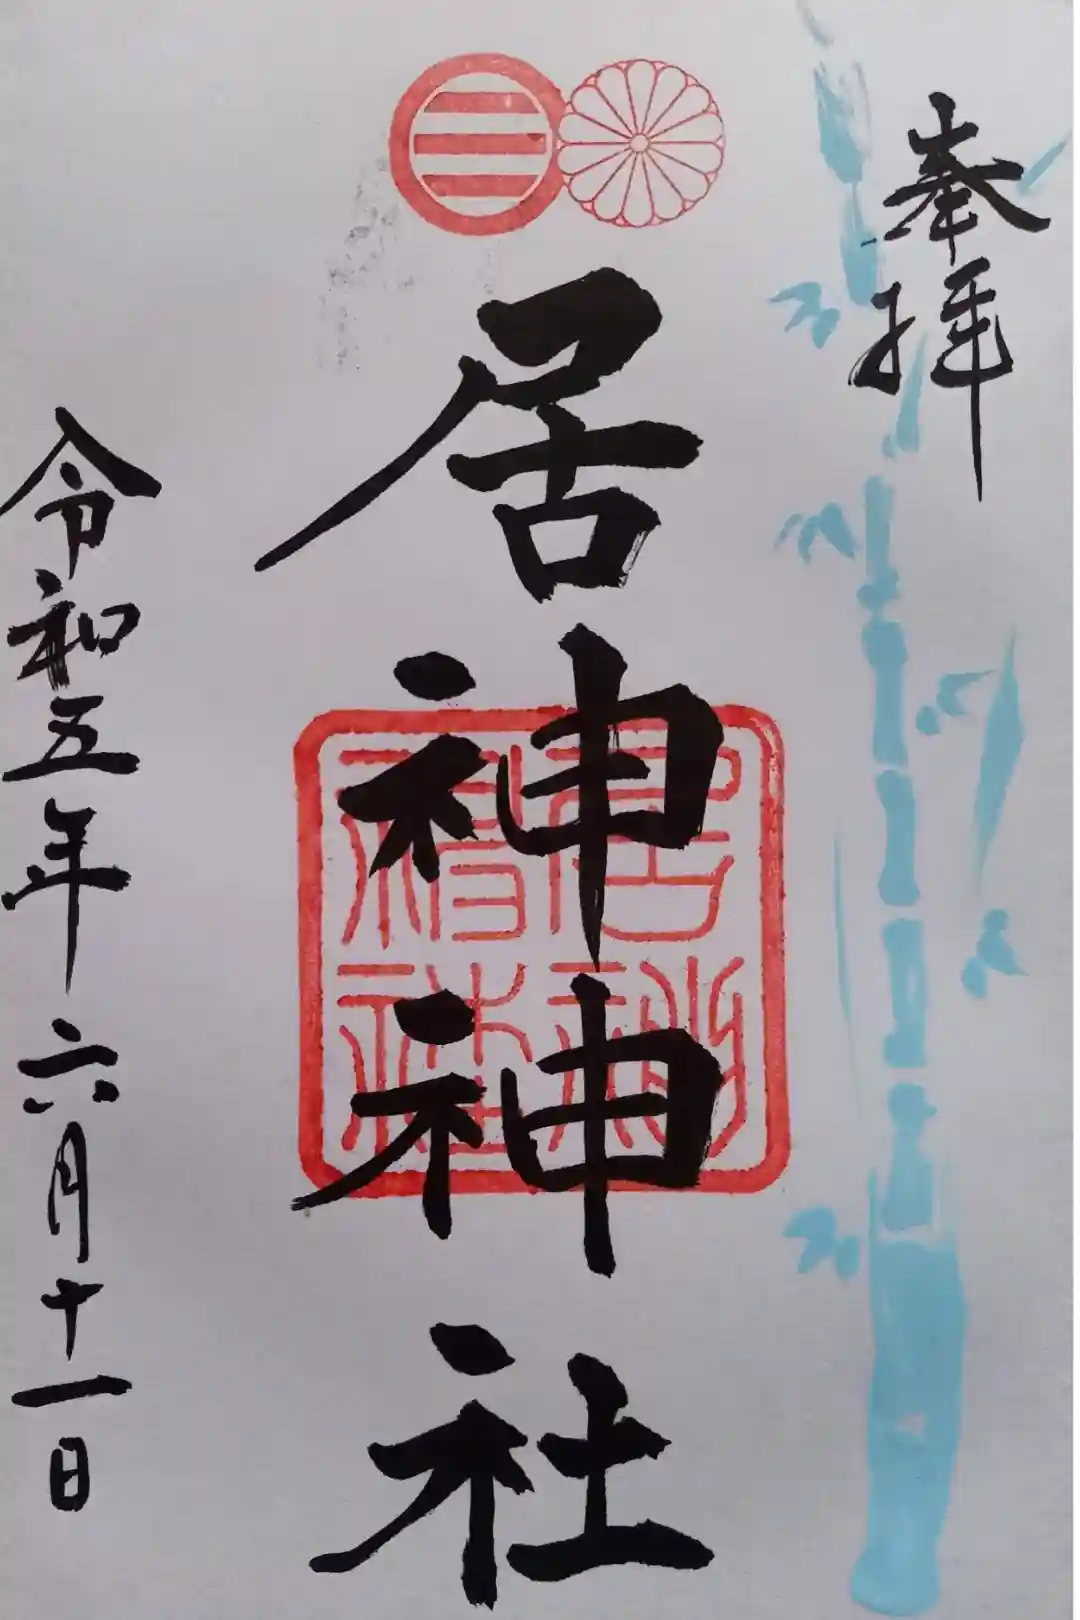 奉拝
居神神社
居神神社
令和五年六月十一日